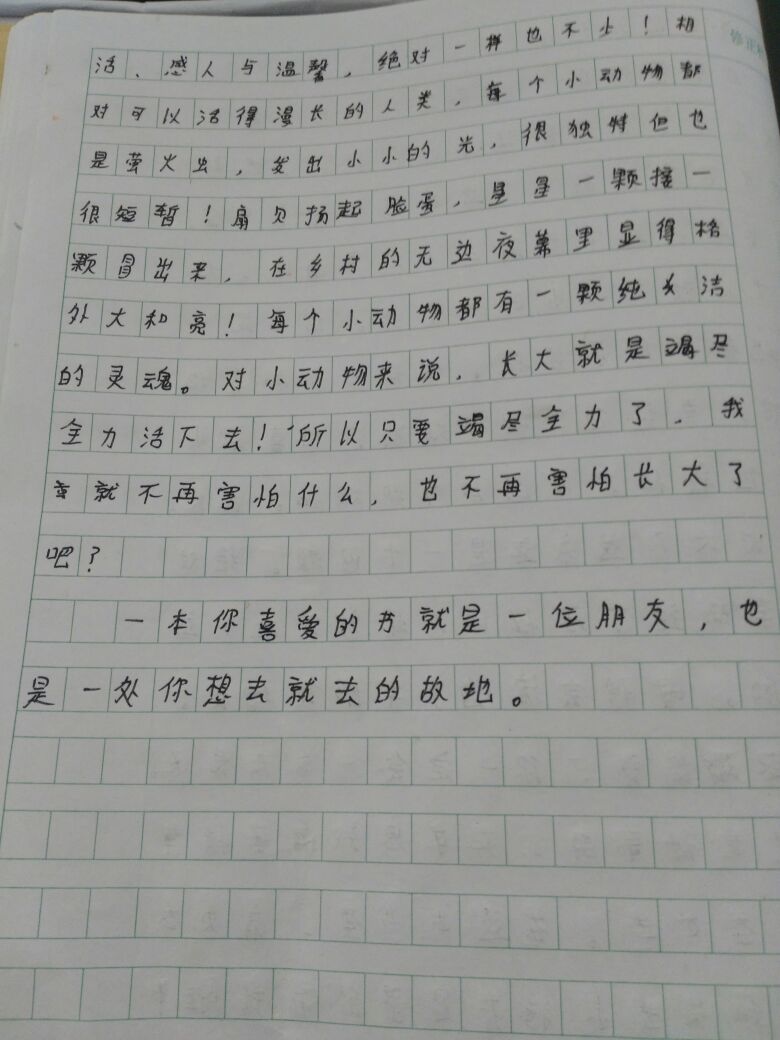 活、感人与温馨，绝对一样也不少！相
对可以活得漫长的人类，每个小动物都
是萤火虫，发出小小的光，很独特但也
很短暂！扇贝扬起脸蛋，星星一颗接一
颗冒出来，在乡村的无边夜幕里显得格
外大和亮！每个小动物都有一颗纯洁
的灵魂。对小动物来说，长大就是竭尽
全力活下去！所以只要竭尽全力了，我
就不再害怕什么，也不再害怕长大了
吧？
一本你喜爱的书就是一位朋友，也
是一处你想去就去的故地。